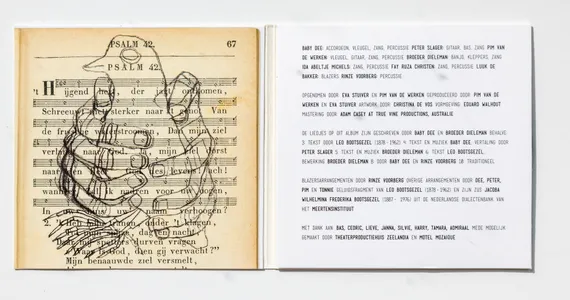 PSALM 42.
67
PSALM 42.
't Hijgend hert, der jacht ontkomen,
Schreeuwt sterker naar 't genot Van
de frissche waterstroomen, Dan mijn ziel
verlangt naar God. Ja, mijn ziel
dorst naar God des levens! ach!
wanneer zal ik nadren voor uw oogen,
In uw huis, uw naam verhoogen?
2. 'k Heb mijn tranen, onder 't klagen,
tot mijn spijze, dag en nacht,
Daar mij spotters durven vragen
„Waar is God, dien gij verwacht?”
Mijn benaauwde ziel versmelt,
BABY DEE: ACCORDEON, VLEUGEL, ZANG, PERCUSSIE PETER SLAGER: GITAAR, BAS, ZANG PIM VAN
DE WERKEN: VLEUGEL, GITAAR, ZANG, PERCUSSIE BROEDER DIELEMAN: BANJO, KLEPPERS, ZANG
IDA ABELTJE MICHELS: ZANG, PERCUSSIE FAY RUZA CHRISTEN: ZANG, PERCUSSIE LUUK DE
BAKKER: BLAZERS RINZE VOORBERG: PERCUSSIE
OPGENOMEN DOOR EVA STUIVER EN PIM VAN DE WERKEN GEPRODUCEERD DOOR PIM VAN DE
WERKEN EN EVA STUIVER ARTWORK DOOR CHRISTINA DE VOS VORMGEVING: EDUARD WALHOUT
MASTERING DOOR ADAM CASEY AT TRUE VINE PRODUCTIONS, AUSTRALIE
DE LIEDJES OP DIT ALBUM ZIJN GESCHREVEN DOOR BABY DEE EN BROEDER DIELEMAN BEHALVE:
3: TEKST DOOR LEO BOOTSGEZEL (1878 - 1962) 4: TEKST EN MUZIEK BABY DEE, VERTALING DOOR
PETER SLAGER 5: TEKST EN MUZIEK BROEDER DIELEMAN 6: TEKST LEO BOOTSGEZEL,
BEWERKING BROEDER DIELEMAN 8: DOOR BABY DEE EN RINZE VOORBERG 10: TRADITIONEEL
BLAZERSARRANGEMENTEN DOOR RINZE VOORBERG OVERIGE ARRANGEMENTEN DOOR DEE, PETER,
PIM EN TONNIE GELUIDSFRAGMENT VAN LEO BOOTSGEZEL (1878 - 1962) EN ZIJN ZUS JACOBA
WILHELMINA FREDERIKA BOOTSGEZEL (1887 - 1976) UIT DE NEDERLANDSE DIALECTENBANK VAN
HET MEERTENSINSTITUUT
MET DANK AAN BAS, CEDRIC, LIEVE, JANNA, SILVIE, HARRY, TAMARA, ADMIRAAL MEDE MOGELIJK
GEMAAKT DOOR THEATERPRODUCTIEHUIS ZEELANDIA EN MOTEL MOZAIQUE